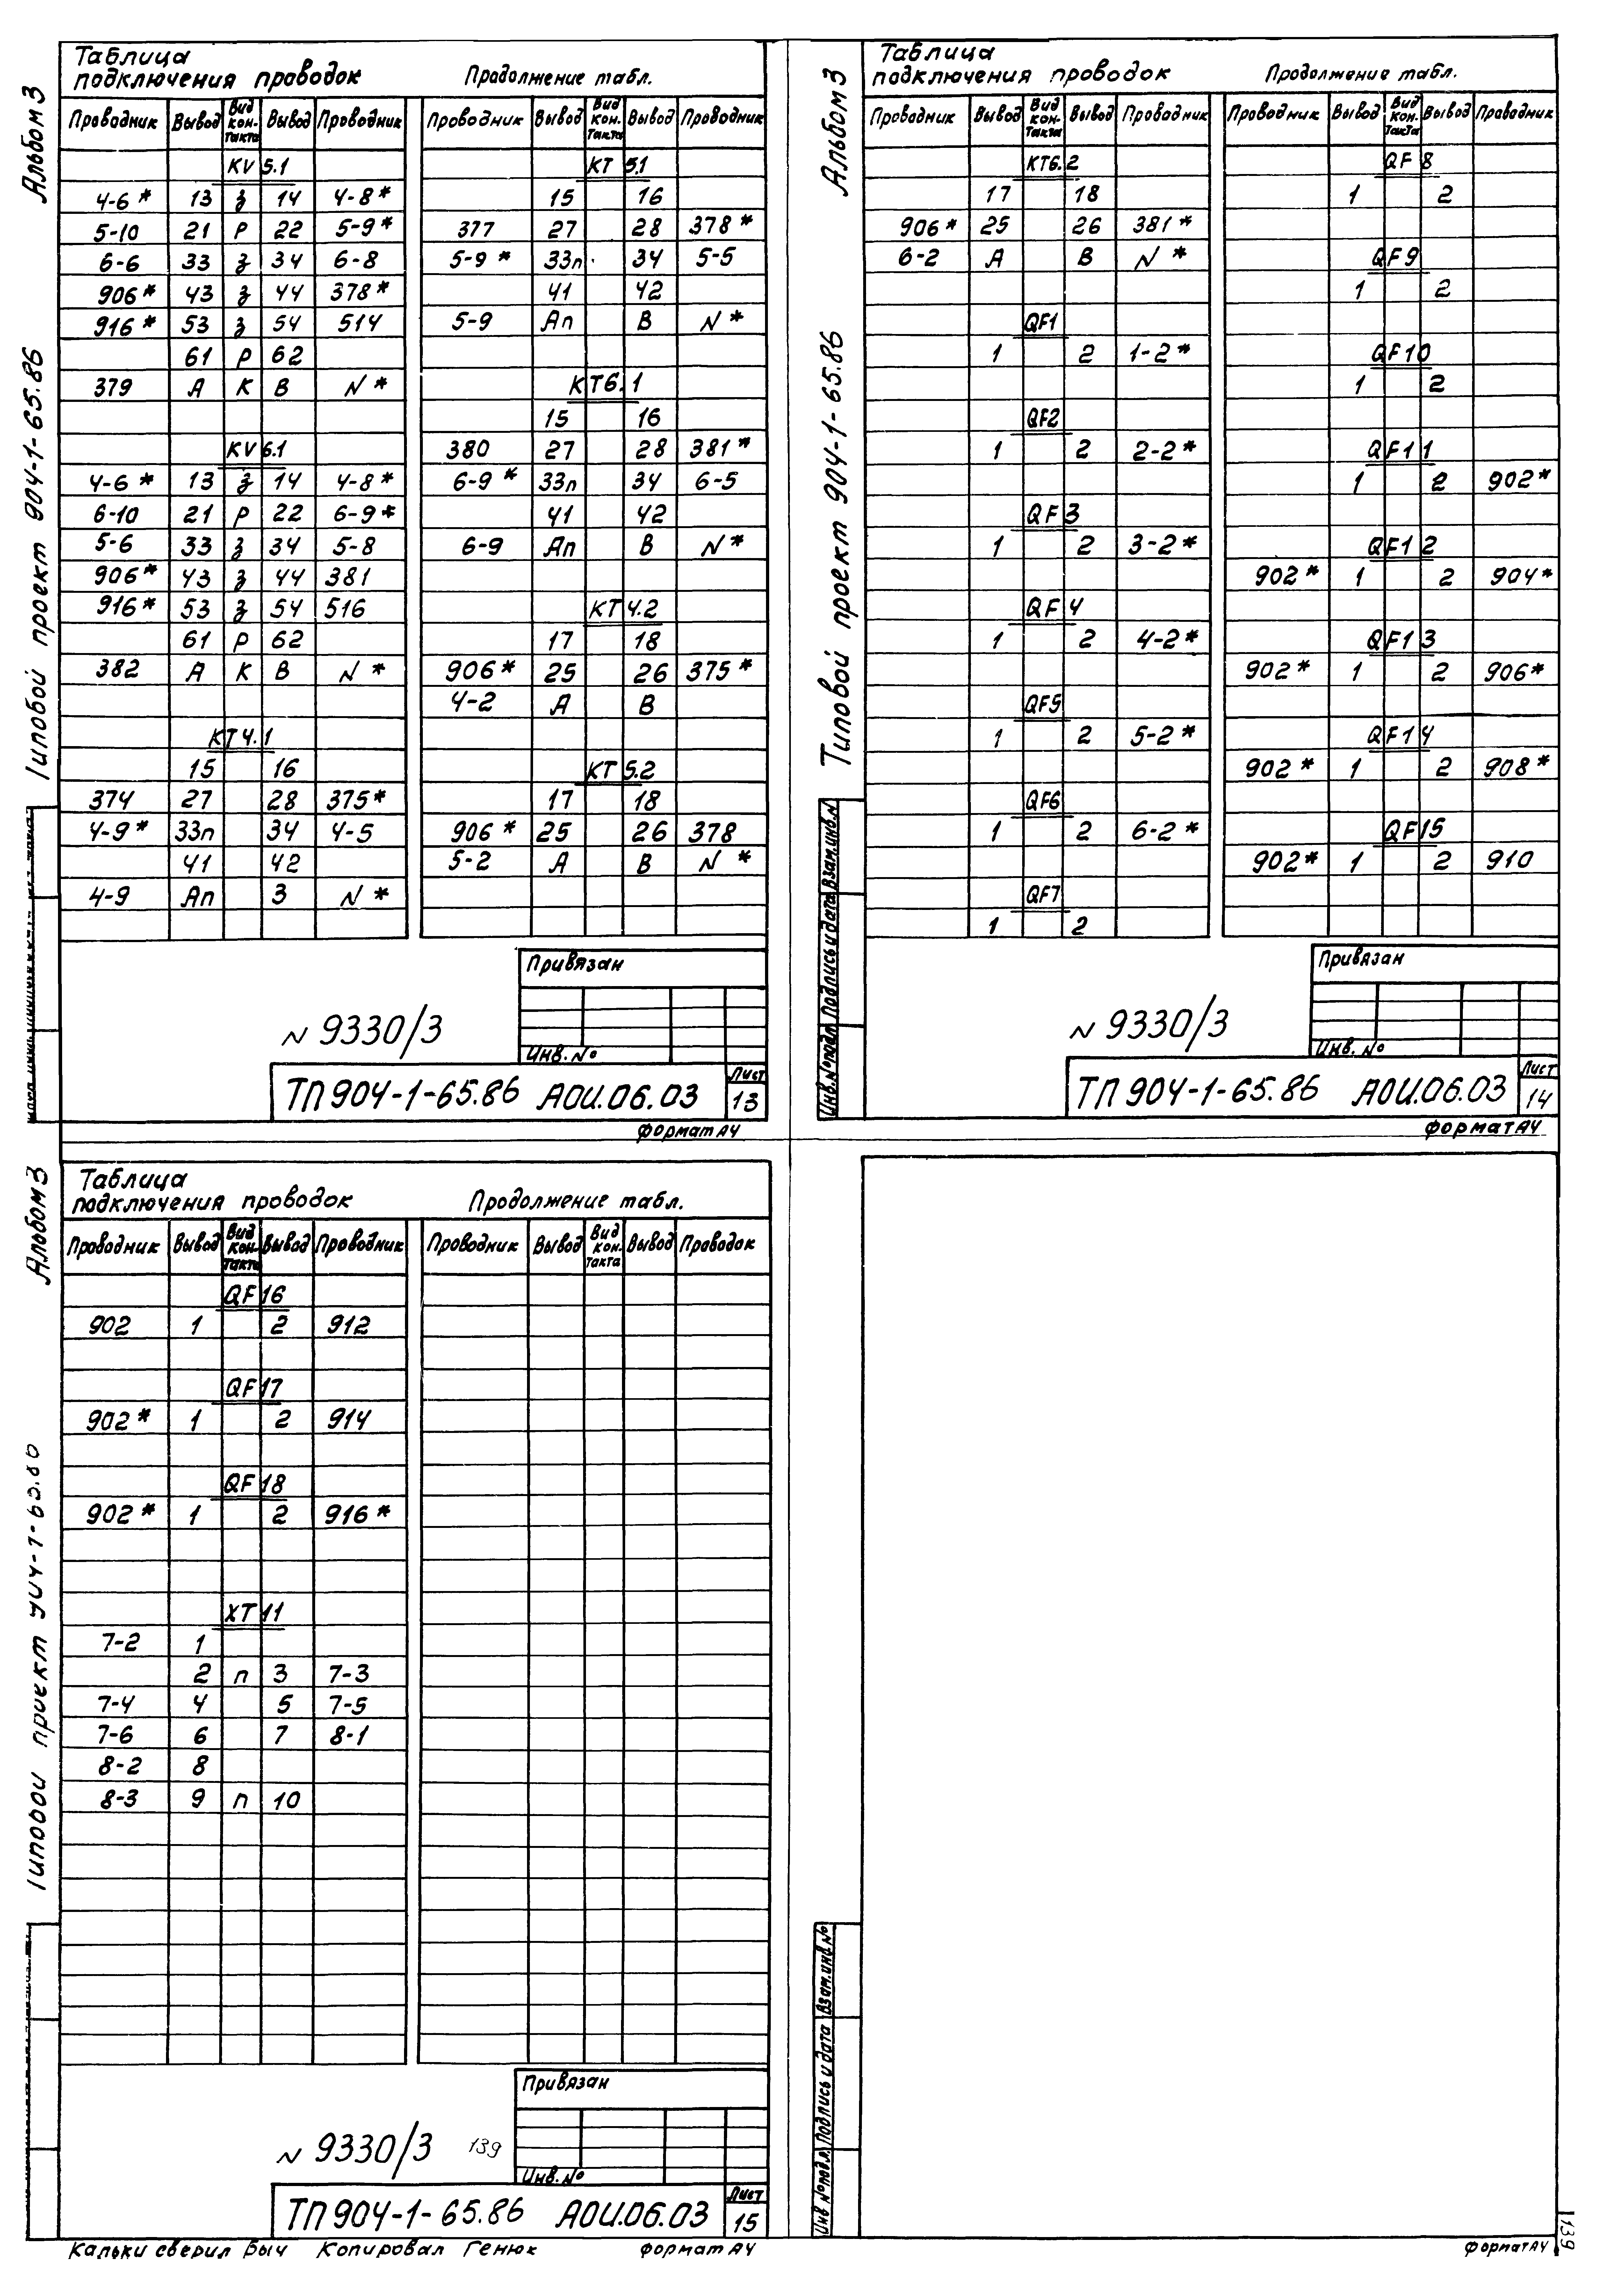 Альбом 3
Типовой проект 904-1-65.86
Таблица
подключения проводок
Продолжение табл.
Проводник Вывод Вид контакта Вывод Проводник
KV 5.1
4-6* 13 з 14 4-8*
5-10 21 р 22 5-9*
6-6 33 з 34 6-8
906* 43 з 44 378*
916* 53 з 54 514
61 р 62
379 А К В N*
KV 6.1
4-6* 13 з 14 4-8*
6-10 21 р 22 6-9*
5-6 33 з 34 5-8
906* 43 з 44 381
916* 53 з 54 516
61 р 62
382 А К В N*
КТ 4.1
15 16
374 27 28 375*
4-9* 33п 34 4-5
41 42
4-9 Ап З N*
Проводник Вывод Вид кон. такта Вывод Проводник
КТ 5.1
15 16
377 27 28 378*
5-9* 33п 34 5-5
41 42
5-9 Ап В N*
КТ 6.1
15 16
380 27 28 381*
6-9* 33п 34 6-5
41 42
6-9 Ап В N*
КТ 4.2
17 18
906* 25 26 375*
4-2 А В
КТ 5.2
17 18
906* 25 26 378
5-2 А В N*
Привязан
Инв. №
N 9330/3
ТП 904-1-65.86 АОИ.06.03
Лист
13
Формат А4
Альбом 3
Типовой проект 904-1-65.86
Взам.инв.N
Подпись и дата
Инв.№подл.
Таблица
подключения проводок
Продолжение табл.
Проводник Вывод Вид кон-такта Вывод Проводник
КТ6.2
17 18
906* 25 26 381*
6-2 А В N*
QF1
1 2 1-2*
QF2
1 2 2-2*
QF3
1 2 3-2*
QF4
1 2 4-2*
QF5
1 2 5-2*
QF6
1 2 6-2*
QF7
1 2
Проводник Вывод Вид кон. такта Вывод Проводник
QF8
1 2
QF9
1 2
QF10
1 2
QF11
1 2 902*
QF12
902* 1 2 904*
QF13
902* 1 2 906*
QF14
902* 1 2 908*
QF15
902* 1 2 910
Привязан
Инв. №
N 9330/3
ТП 904-1-65.86 АОИ.06.03
Лист
14
Формат А4
Альбом 3
Таблица
подключения проводок
Продолжение табл.
Проводник Вывод Вид кон-такта Вывод Проводник
QF16
902 1 2 912
QF17
902* 1 2 914
QF18
902* 1 2 916*
ХТ11
7-2 1
2 п 3 7-3
7-4 4 5 7-5
7-6 6 7 8-1
8-2 8
8-3 9 п 10
Проводник Вывод Вид кон. такта Вывод Проводок
Привязан
Инв. №
N 9330/3 139
ТП 904-1-65.86 АОИ.06.03
Лист
15
Кальки сверил Быч Копировал Генюк Формат А4
Взам.инв.№
Подпись и дата
Инв №подл.
Формат А4
139